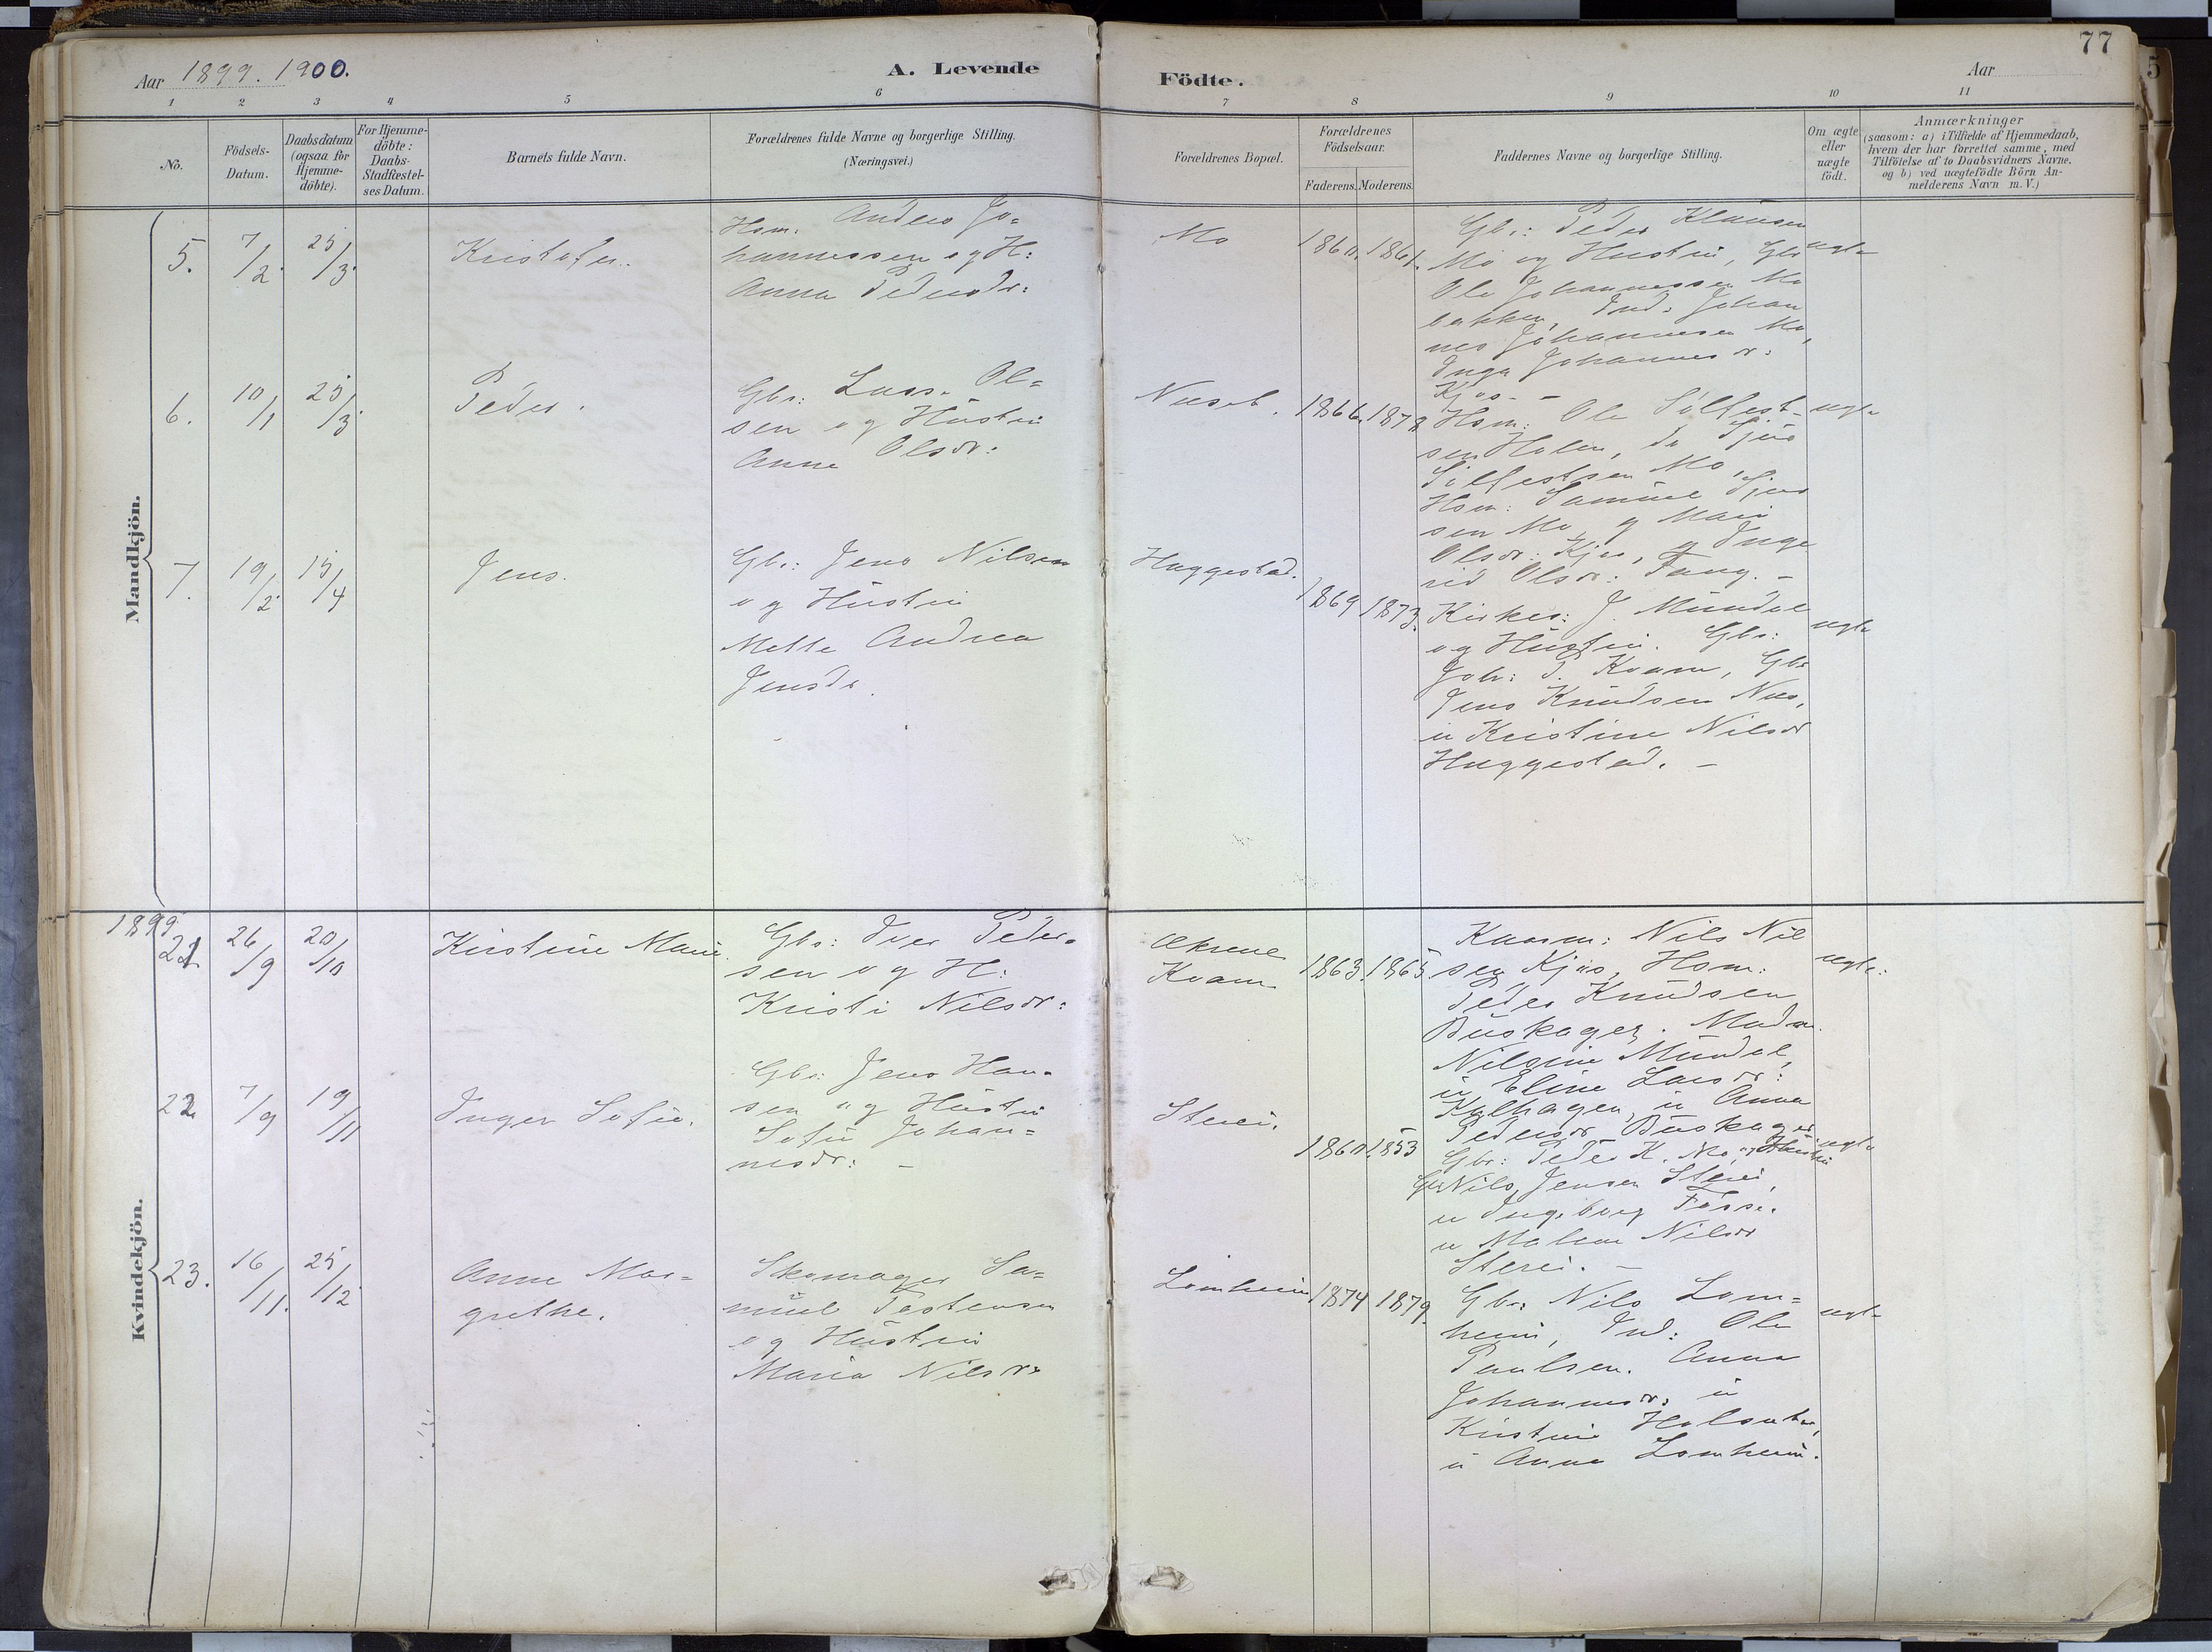 Aar 1899. 1900.
A. Levende
Födte.
Aar
77
5
1 2 3 4 5 6 7 8 9 10 11
No.
Födsels-
Datum.
Daabsdatum
(ogsaa for
Hjemme-
döbte).
For Hjemme-
döbte:
Daabs-
Stadfæstel-
ses Datum.
Barnets fulde Navn.
Forældrenes fulde Navne og borgerlige Stilling.
(Næringsvei.)
Forældrenes Bopæl.
Forældrenes
Födselsaar.
Faderens. Moderens.
Faddernes Navne og borgerlige Stilling.
Om ægte
eller
uægte
födt.
Anmærkninger
(saasom: a) i Tilfælde af Hjemmedaab,
hvem der har forrettet samme, med
Tilföielse af to Daabsvidners Navne.
og b) ved uægtefödte Börn An-
melderens Navn m. V.)
Mandkjön.
5.
7/2.
25/3.
Kristofer.
Hsm. Anders Jo=
hannessen og H:
Anna Pedersdr:
Mo
1860. 1861.
Gbr: Peder Klausen
Mo og Hustru, Gbr
Ole Johannessen Mo
bakken, Ind: Johan
nes Johannesen Mo,
Inga Johannesdr:
Kjos. -
ægte
6.
10/1
25/3.
Peder.
Gbr: Lasse Ol=
sen og Hustru
Anne Olsdr:
Nuset.
1866. 1878
Hsm: Ole Sölfest-
sen Holen, do Sjur
Sölfestsen Mo,
Hsm: Samuel Sjur
sen Mo, og Mari
Olsdr: Kjos, og Inge
rid Olsdr: Fang. -
ægte
7.
19/2.
15/4
Jens.
Gbr: Jens Nilsen
og Hustru
Mette Andrea
Jensdr.
Huggestad.
1869 1873.
Kirkes: J. Mündal
og Hustru. Gbr:
Joh: P. Kvam, Gbr
Jens Knudsen Nus,
u Kristine Nilsdr
Huggestad. -
ægte
Kvindekjön.
1899
21
26/9
20/10
Kirstine Marie.
Gbr: Iver Peder=
sen og H:
Kristi Nilsdr:
Kvam
1863. 1865
Kaarm: Nils Nil
sen Kjos, Hsm:
Peder Knudsen
Buskager. Madm.
Nilsine Mündal,
u Eline Larsdr:
Kalhagen, u Anna
Pedersdr Buskager
ægte:
22
7/9
19/11
Inger Sofie.
Gbr: Jens Han=
sen og Hustru
Sofie Johan=
nesdr: -
Sterei.
1860. 1853
Gbr: Peder K. Mo, og Hustru
Gbr Nils Jensen Sterei,
u Ingeborg Fosse.
u Malene Nilsdr
Sterei. -
ægte
23.
16/11.
25/12
Anne Mar=
grethe.
Skomager Sa=
muel Torstensen
og Hustru
Maria Nilsdr:
Lomheim
1874 1879.
Gbr: Nils Lom=
heim, Ind: Ole
Paulsen. Anna
Johannesdr: u
Kristine Holsæter,
u Anna Lomheim.
ægte